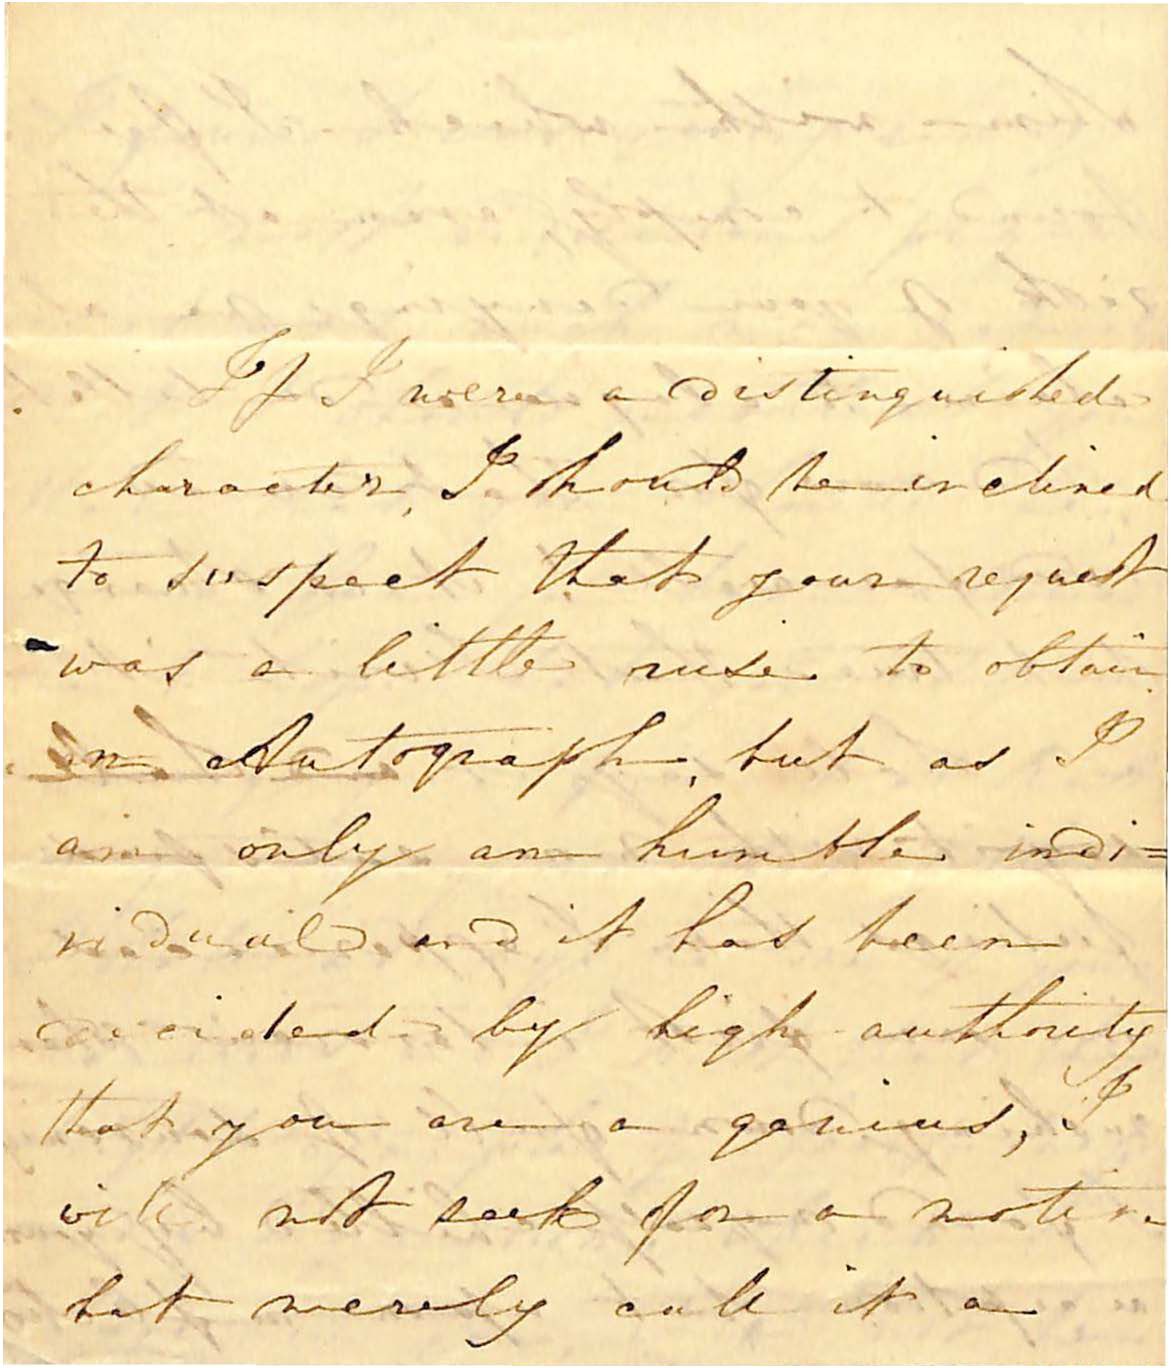 If I were a distinguished
character, I should be inclined
to suspect that your request
was a little ruse to obtain
an Autograph, but as I
am only an humble indi=
vidual and it has been
decided by high authority
that you are a genius, I
will not seek for a motive
but merely call it a